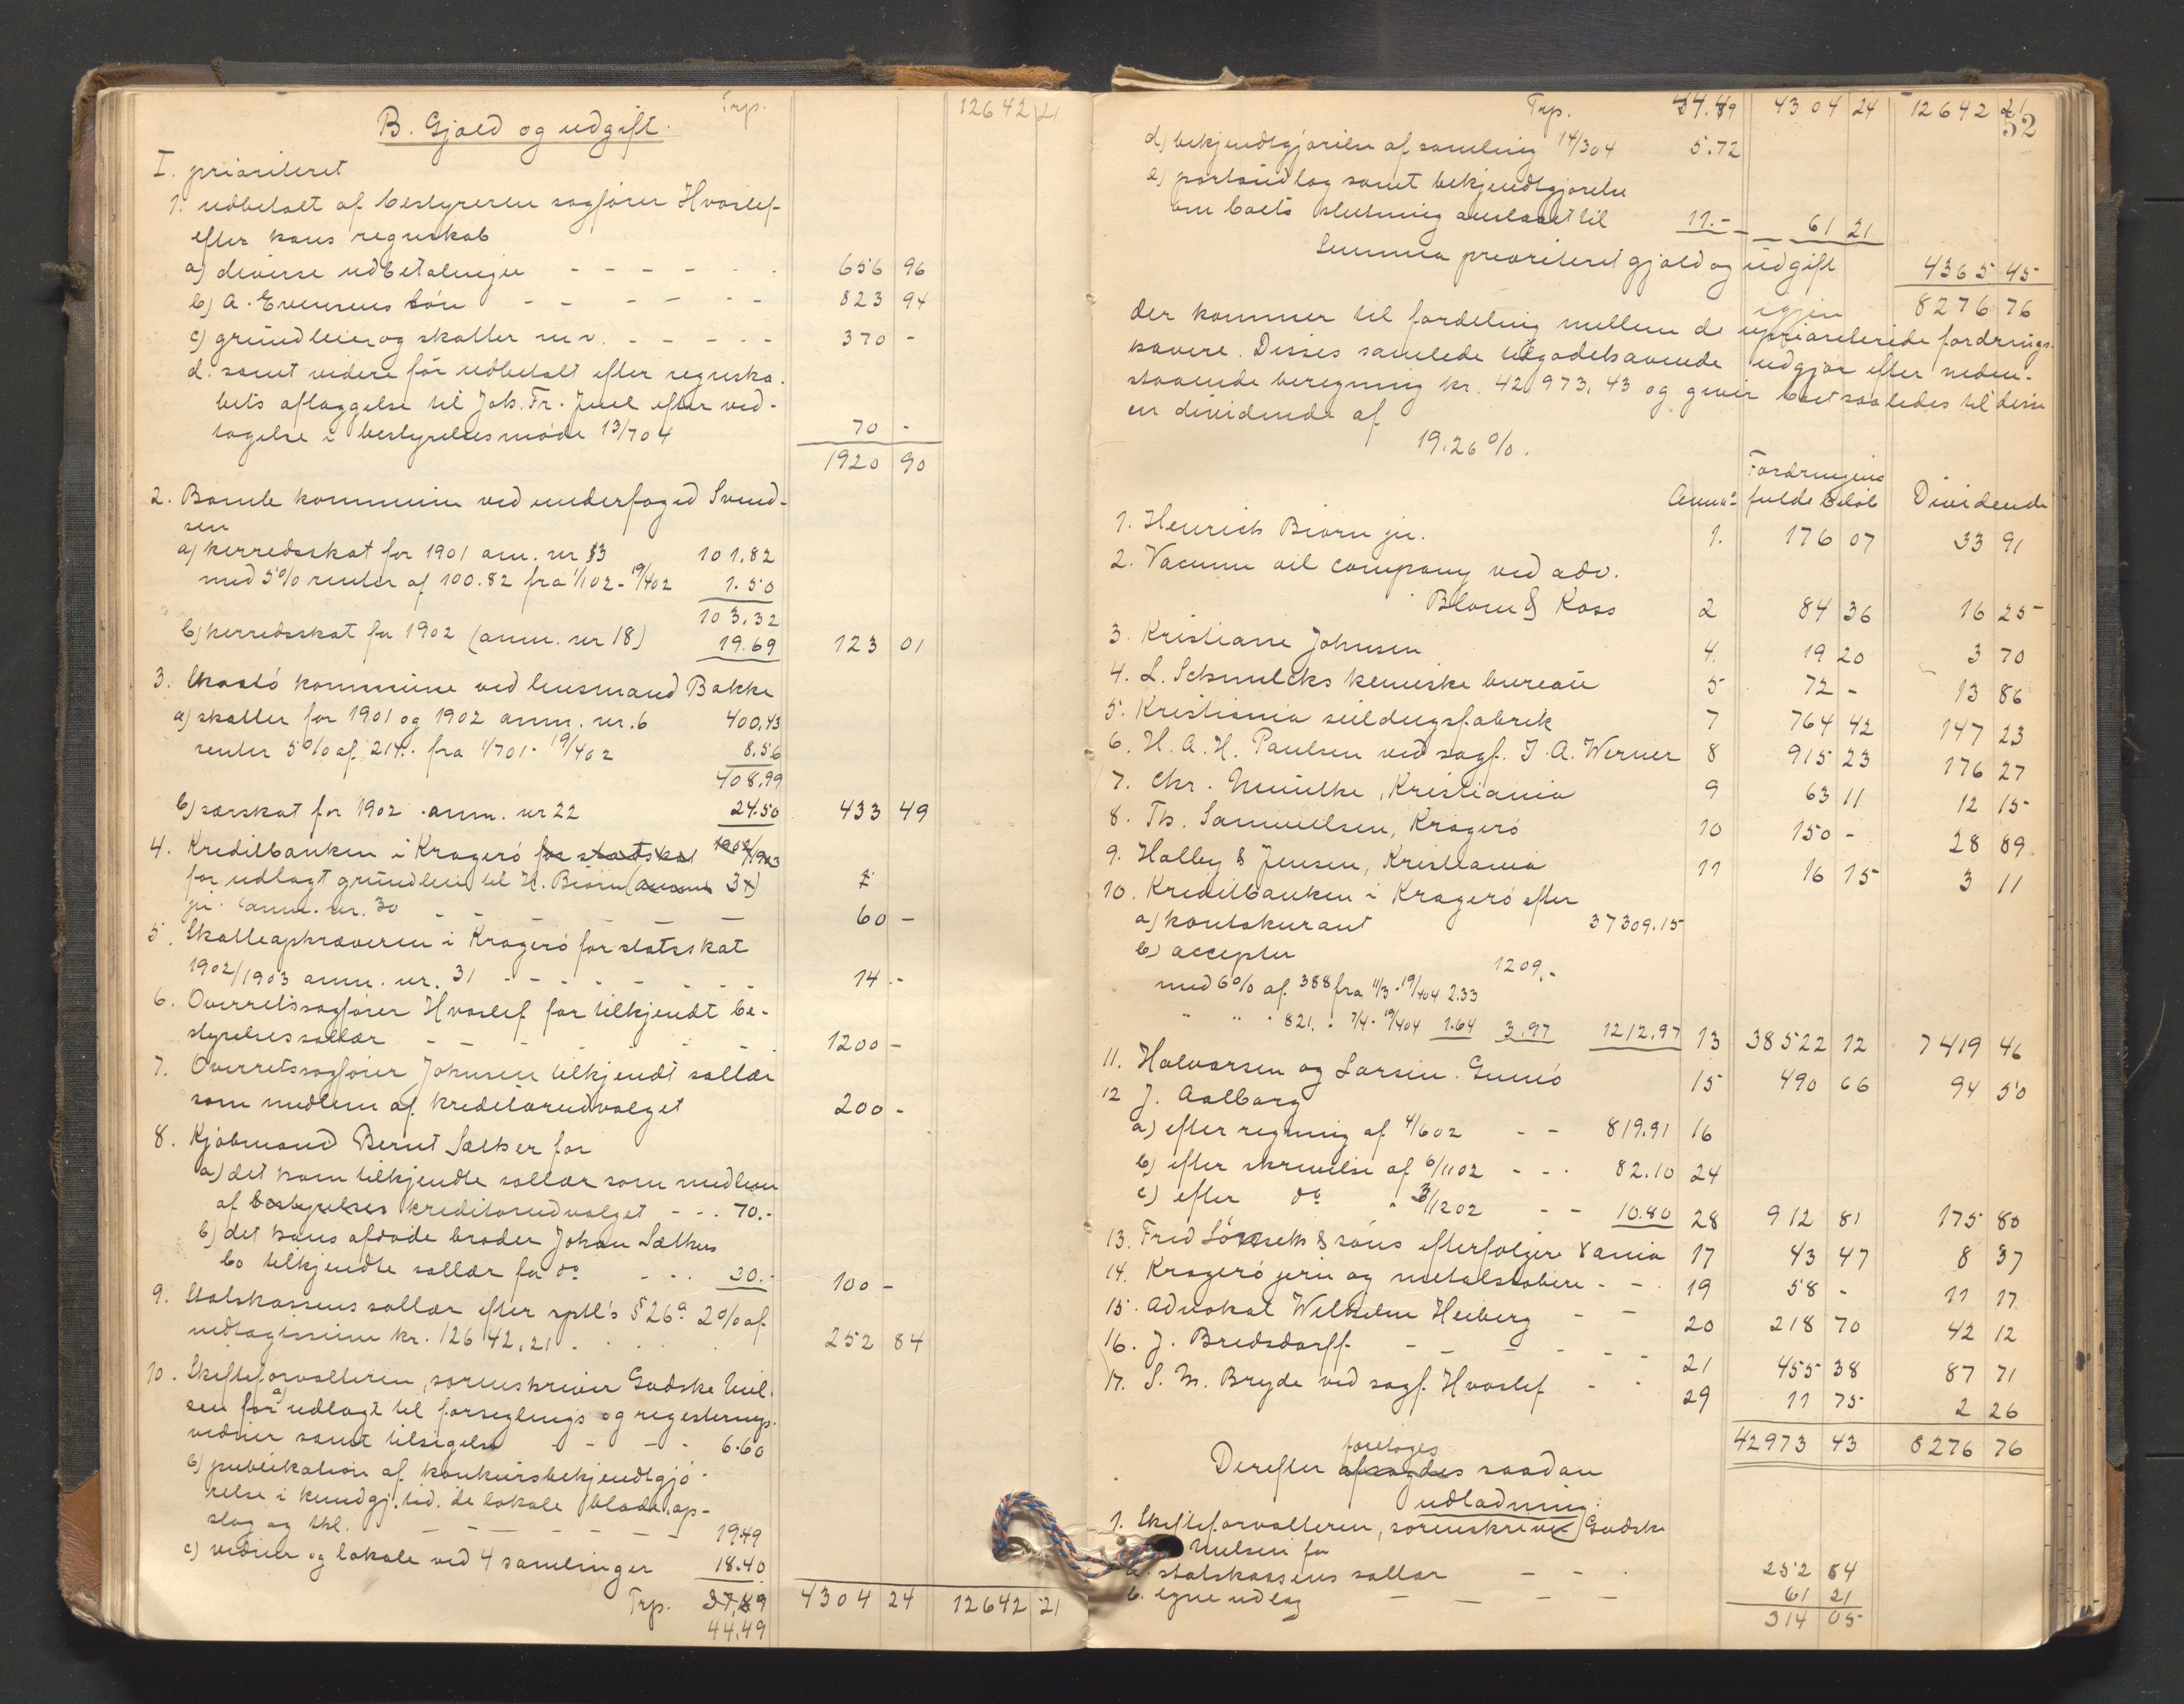 Trp. 12642 21
B. Gjæld og udgift.
I. prioriteret
1. udbetalt af bestyreren sagfører Hvoslef
efter hans regnskab
a) diverse udbetalinger - - - - - - 656 96
b) A. Evensens bön - - - - - - 823 94
c) grundleie og skatter m v. - - - - - 370 -
d. samt videre før udbetalt efter regnska-
bets aflæggelse til Joh. Fr. Juel efter ved-
tagelse i bestyrelsesmøde 13/7 04 70 -
1920 90
2. Bamle kommune ved underfoged Svend-
sen
a) herredsskat for 1901 anm. nr 3 101,82
med 5% renter af 100.82 fra 1/1 02 - 19/4 02 1.50
103,32
b) herredsskat for 1902 (anm. nr 18) 19.69 123 01
3. Skaatö kommune ved lensmand Bakke
a) skatter for 1901 og 1902 anm. nr. 6 400,43
renter 5% af 214.- fra 1/7 01 - 19/4 02 8.56
408,99
b) særskat for 1902 anm. nr 22 24.50 433 49
4. Kreditbanken i Kragerö for statsskat 1902/1903
for udlagt grundleie til H. Biørn (anm. 31)
jr. (anm. nr. 30 - - - - - - 60 -
5. Skatteopkræveren i Kragerö for statsskat
1902/1903 anm. nr. 31 - - - - - - - 14 -
6. Overretssagfører Hvoslef for tilkjendt be-
styrelsessallær - - - - - - - 1200 -
7. Overretssagfører Johnsen tilkjendt sallær
som medlem af kreditorudvalget 200 -
8. Kjøbmand Bernt Sælher for
a) det ham tilkjendte sallær som medlem
af bestyrelses kreditorudvalget - - - 70.-
b) det hans afdøde broder Johan Sælhers
bo tilkjendte sallær for do - - - 30.- 100 -
9. Statskassens sallær efter sptl's § 26a 2% af
indtægtssum kr. 12642,21 . . . . 252 84
10. Skifteforvalteren, sorenskriver Godske Niel-
sen for a) udlagt til forseglings og registerings-
vidner samt tilsigelse - - - - 6.60
b) publikation af konkursbekjendtgjö-
relse i kundgj. tid. de lokale blade, op-
slag og tkl. - - - - - - - 19.49
c) vidner og lokale ved 4 samlinger 18.40
Trp. 37,89 4304 24 12642 21
44.49
Trp. 44.49 4304 24 12642 21
52
d) bekjendtgjørelse af samling 14/3 04 5.72
e) portoudlæg samt bekjendtgjørelse
om boets slutning anslaaet til 11.- 61 21
Summa prioriteret gjæld og udgift 4365 45
igjen 8276 76
der kommer til fordeling mellem de uprioriterede fordrings-
havere. Disses samlede tilgodehavende udgjør efter neden-
staaende beregning kr. 42,973,43 og giver boet saaledes til disse
en dividende af
19.26%.
Anm.nr Fordringens fulde beløb Dividende
1. Henrich Biørn jr. 1. 176 07 33 91
2. Vacuum oil company ved adv.
Blom & Koss 2 84 36 16 25
3. Kristiane Johnsen 4. 19 20 3 70
4. L. Schmelcks kemiske bureau 5 72 - 13 86
5. Kristiania seildugsfabrik 7 764 42 147 23
6. H. A. H. Paulsen ved sagf. J. A. Werner 8 915 23 176 27
7. Chr. Munthe, Kristiania 9 63 11 12 15
8. Th. Samuelsen, Kragerö 10 150 - 28 89
9. Halby & Jensen, Kristiania 11 16 15 3 11
10. Kreditbanken i Kragerö efter
a) kontokurant 37309.15
b) accepter 1209.-
med 6% af 388 fra 11/3 - 19/4 04 2.33
" " - 821. - 7/4 - 19/4 04 1.64 3.97 1212.97 13 38522 12 7419 46
11. Halvorsen og Larsen. Gumö 15 490 66 94 50
12 J. Aalborg
a) efter regning af 4/6 02 - - 819.91 16
b) efter skrivelse af 6/11 02 - - - 82.10 24
c) efter do " 3/12 02 - - 10.80 28 912 81 175 80
13. Fred Lörseth & söns efterfølgere Xania 17 43 47 8 37
14. Kragerö jern og metalstøberi - - 19 58 - 11 17
15. Advokat Wilhelm Heiberg - - 20 218 70 42 12
16. J. Bredsdorff - - - - - - 21 455 38 87 71
17. S. M. Bryde ved sagf. Hvoslef - - 29 11 75 2 26
42973 43 8276 76
foretoges
Derefter afsagdes saadan
udlodning:
1. Skifteforvalteren, sorenskriver Godske
Nielsen for
a. statskassens sallær - - - 252 84
b. egne udlæg - - - - 61 21
314 05